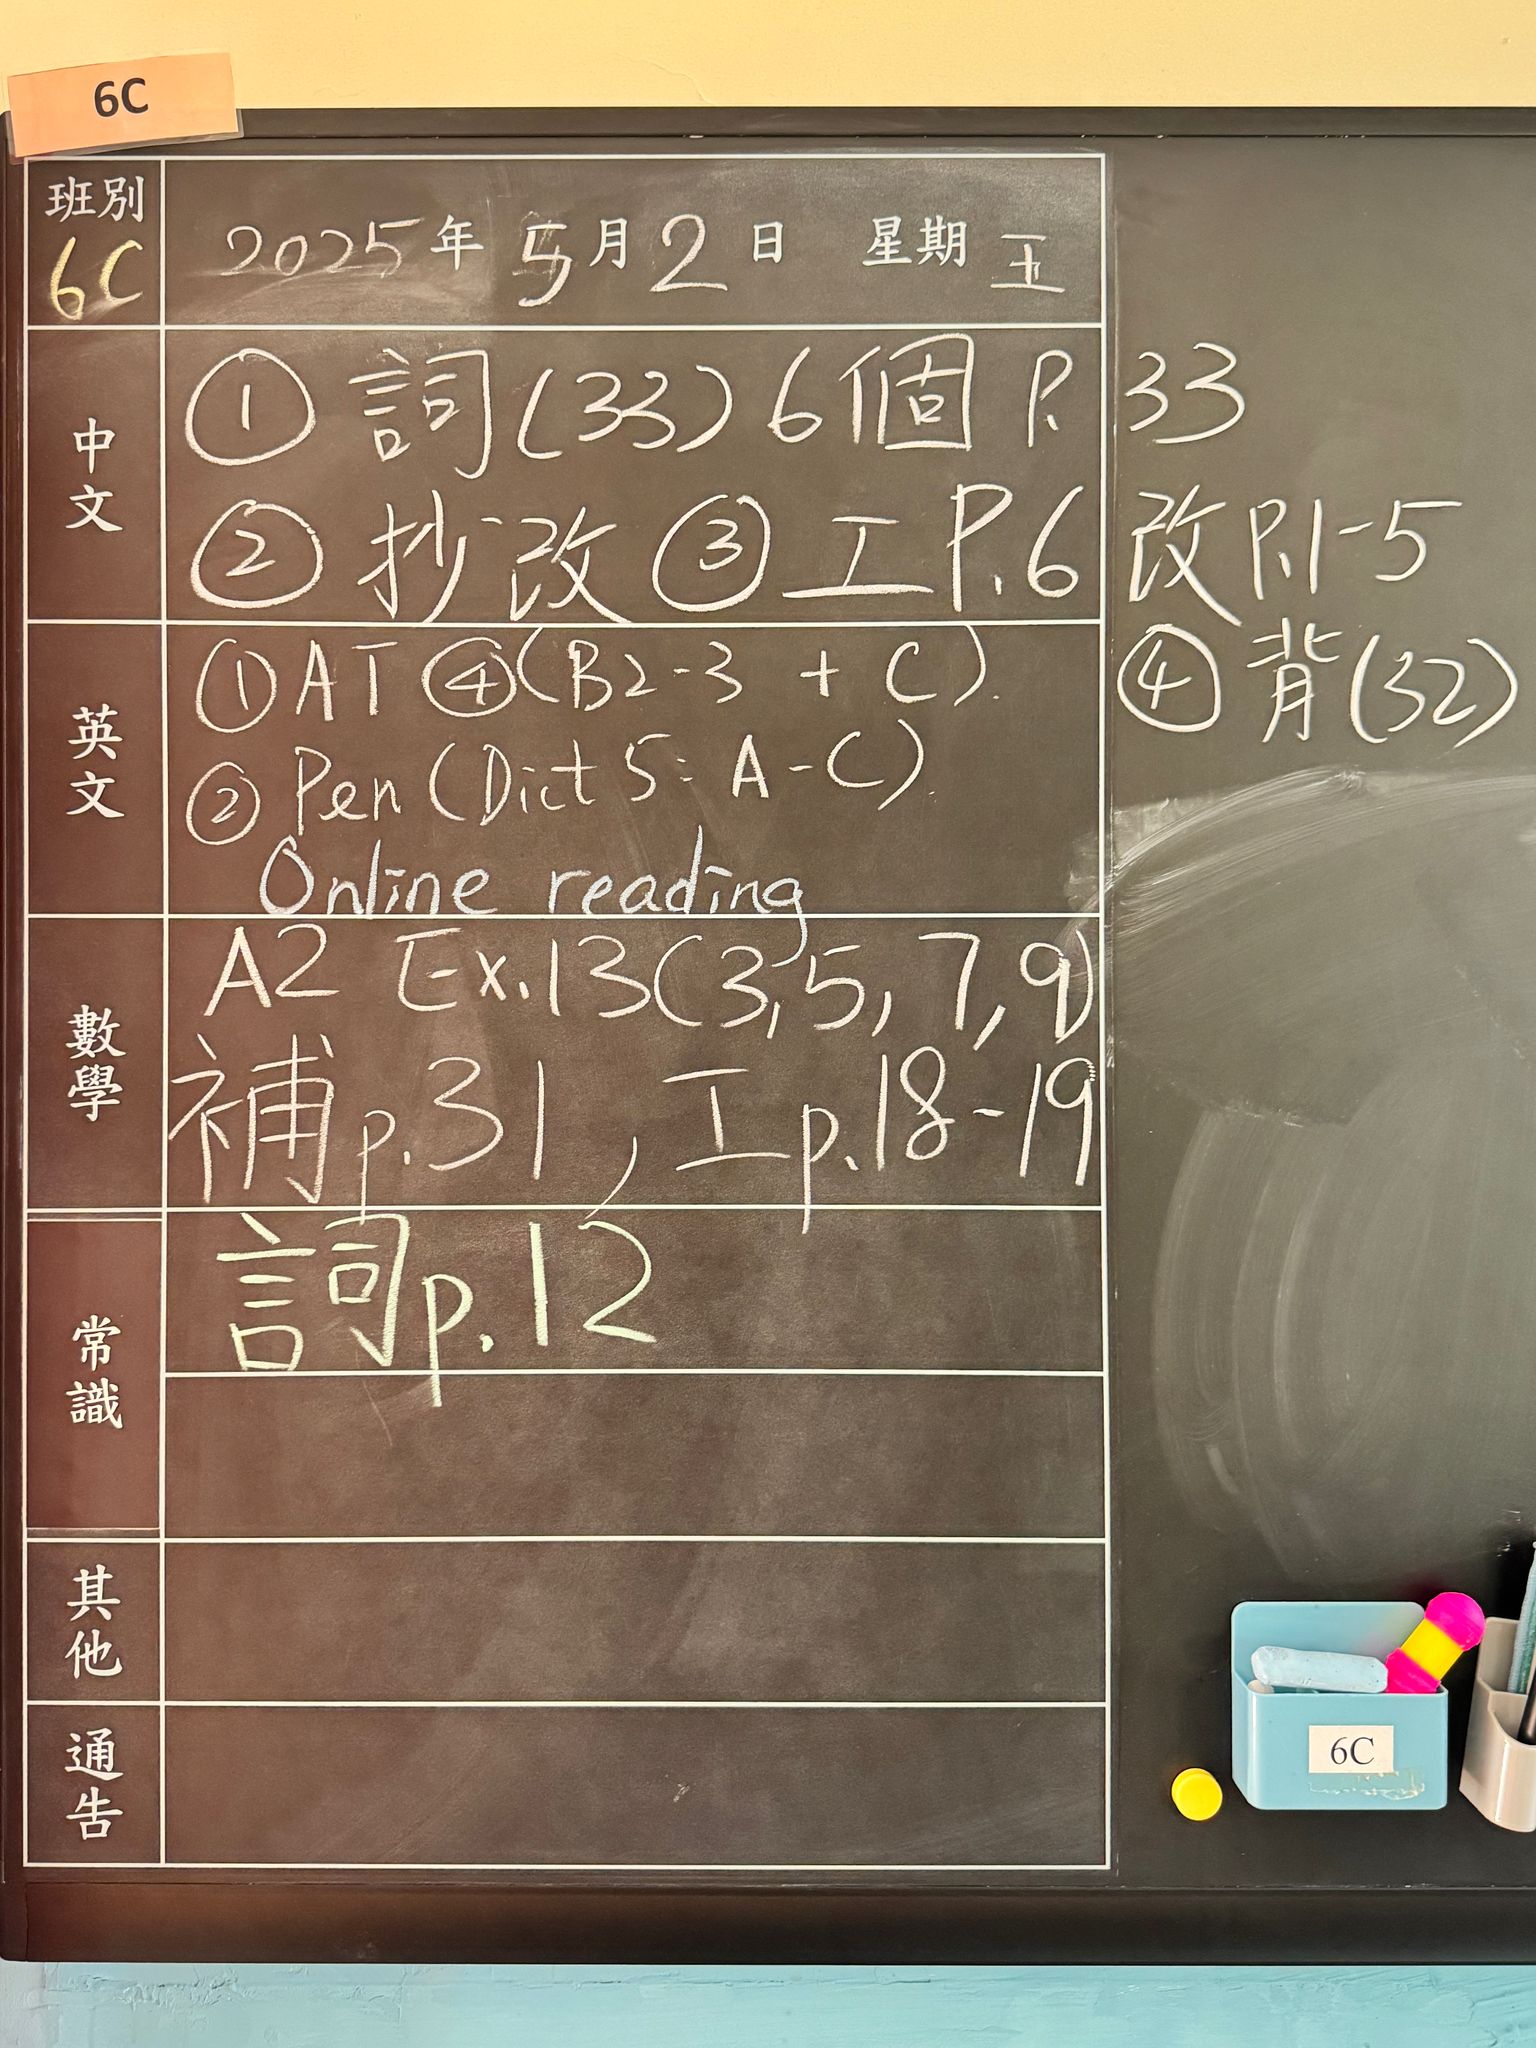 6C
班別 2025年 5月 2日 星期五
6C
中文
① 詞(33) 6個 P.33
② 抄改 ③ 工 P.6 改 P.1-5
④ 背(32)
英文
① AT ④ (B2-3 + C).
② Pen (Dict 5: A-C).
Online reading
數學
A2 Ex.13(3,5,7,9)
補p.31, 工p.18-19
常識
詞p.12
其他
通告
6C